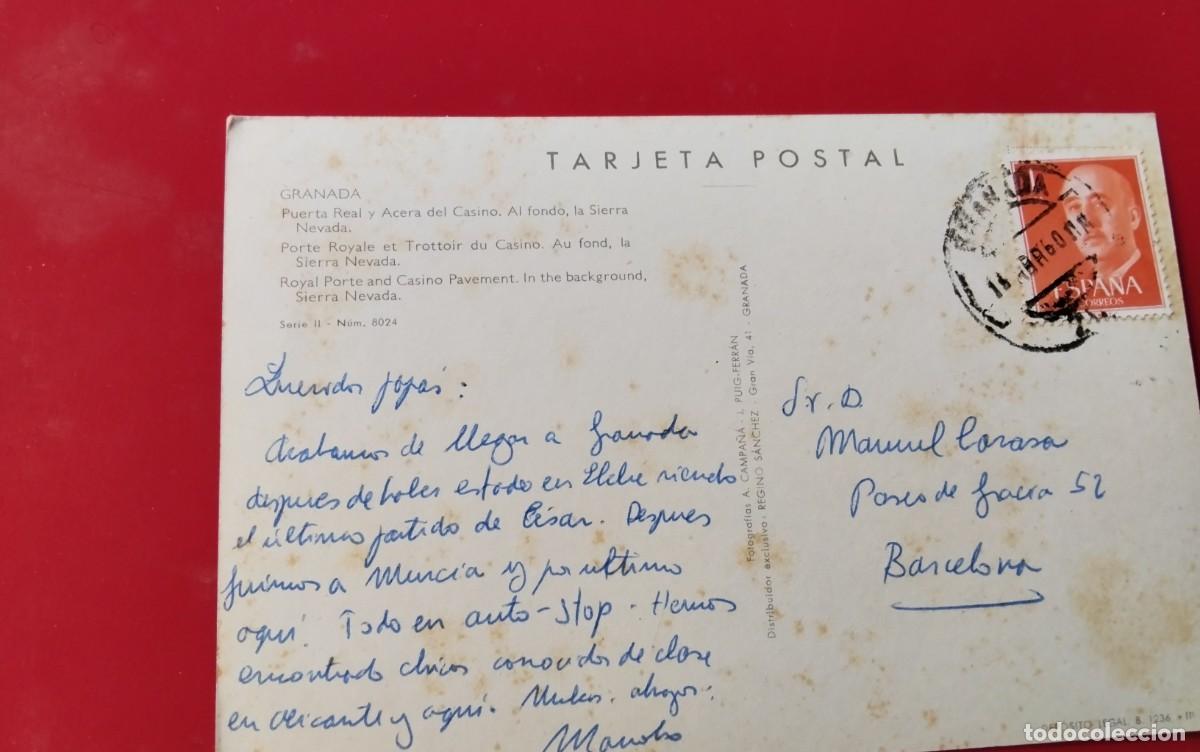 TARJETA POSTAL
GRANADA
Puerta Real y Acera del Casino. Al fondo, la Sierra
Nevada.
Porte Royale et Trottoir du Casino. Au fond, la
Sierra Nevada.
Royal Porte and Casino Pavement. In the background,
Sierra Nevada.
Serie II - Núm. 8024
Queridos papás:
Acabamos de llegar a Granada
despues de haber estado en Elche viendo
el último partido de César. Despues
fuimos a Murcia y por ultimo
aquí. Todo en auto-stop. Hemos
encontrado chicos conocidos de clase
en Alicante y aquí. Muchos abrazos.
Manolo
Fotografías A. CAMPAÑÁ - J. PUIG-FERRÁN
Distribuidor exclusivo: REGINO SÁNCHEZ - Gran Vía, 41 - GRANADA
GRANADA
1
ESPAÑA
CORREOS
Sr. D.
Manuel Carasa
Paseo de Gracia 52
Barcelona
DEPÓSITO LEGAL B. 1236
todocoleccion